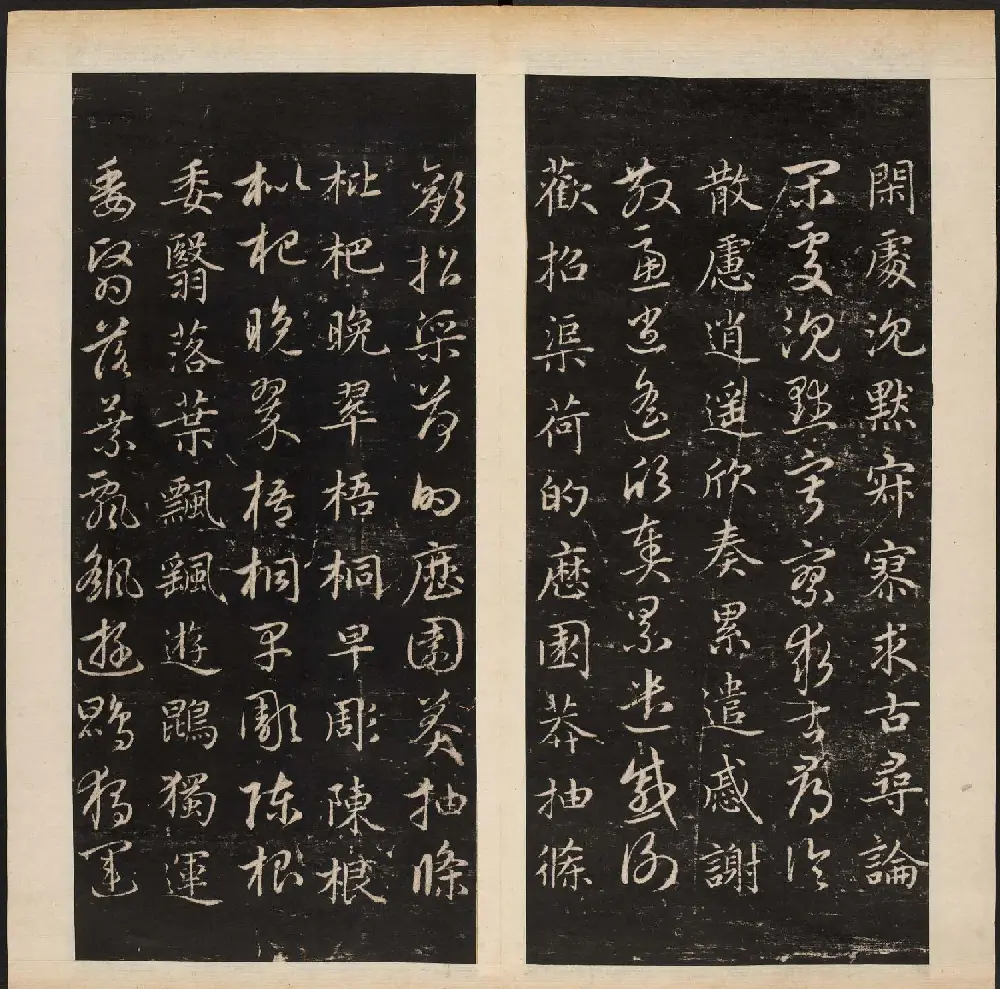 閑處沉默寂寥求古尋論
閑處沉默寂寥求古尋論
散慮逍遙欣奏累遣慼謝
散慮逍遙欣奏累遣慼謝
歡招渠荷的歷園莽抽條
歡招渠荷的歷園莽抽條
枇杷晚翠梧桐早彫陳根
枇杷晚翠梧桐早彫陳根
委翳落葉飄颻遊鵾獨運
委翳落葉飄颻遊鵾獨運